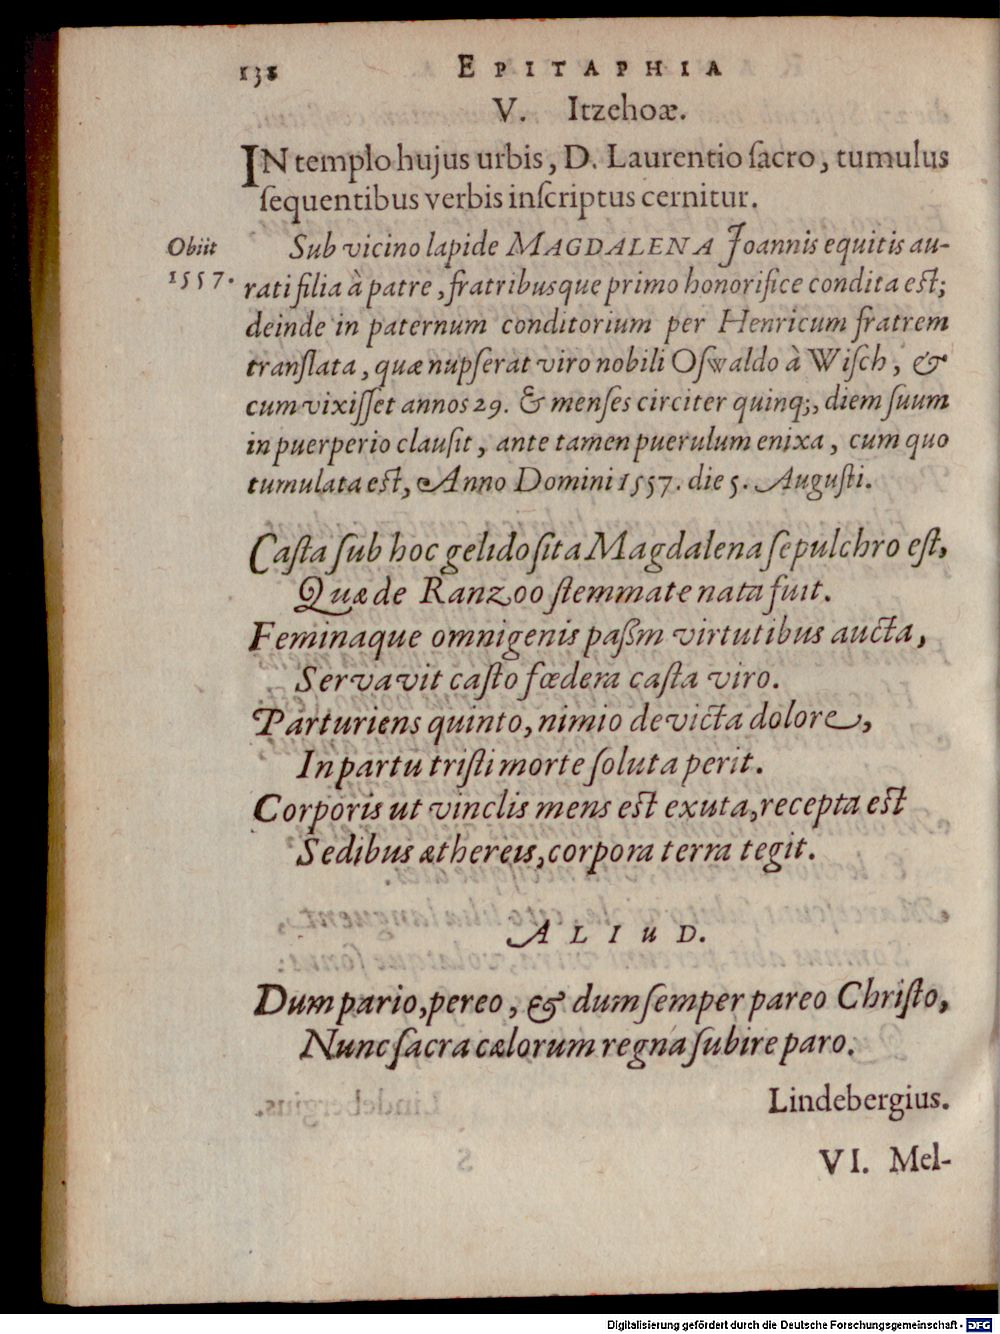 138 EPITAPHIA
V. Itzehoæ.
IN templo hujus urbis, D. Laurentio ſacro, tumulus
ſequentibus verbis inſcriptus cernitur.
Obiit
1557.
Sub vicino lapide MAGDALENA Joannis equitis au-
rati filia à patre, fratribusque primo honorifice condita eſt;
deinde in paternum conditorium per Henricum fratrem
translata, quæ nupſerat viro nobili Oſwaldo à Wiſch, &
cum vixiſſet annos 29. & menſes circiter quinq;, diem ſuum
in puerperio clauſit, ante tamen puerulum enixa, cum quo
tumulata eſt, Anno Domini 1557. die 5. Auguſti.
Caſta ſub hoc gelido ſita Magdalena ſepulchro eſt,
Quæ de Ranzoo ſtemmate nata fuit.
Feminaque omnigenis paßm virtutibus aucta,
Servavit caſto fœdera caſta viro.
Parturiens quinto, nimio devicta dolore,
In partu triſti morte ſoluta perit.
Corporis ut vinclis mens eſt exuta, recepta eſt
Sedibus æthereis, corpora terra tegit.
ALIUD.
Dum pario, pereo, & dum ſemper pareo Chriſto,
Nunc ſacra cælorum regna ſubire paro.
Lindebergius.
VI. Mel-
Digitalisierung gefördert durch die Deutsche Forschungsgemeinschaft - DFG